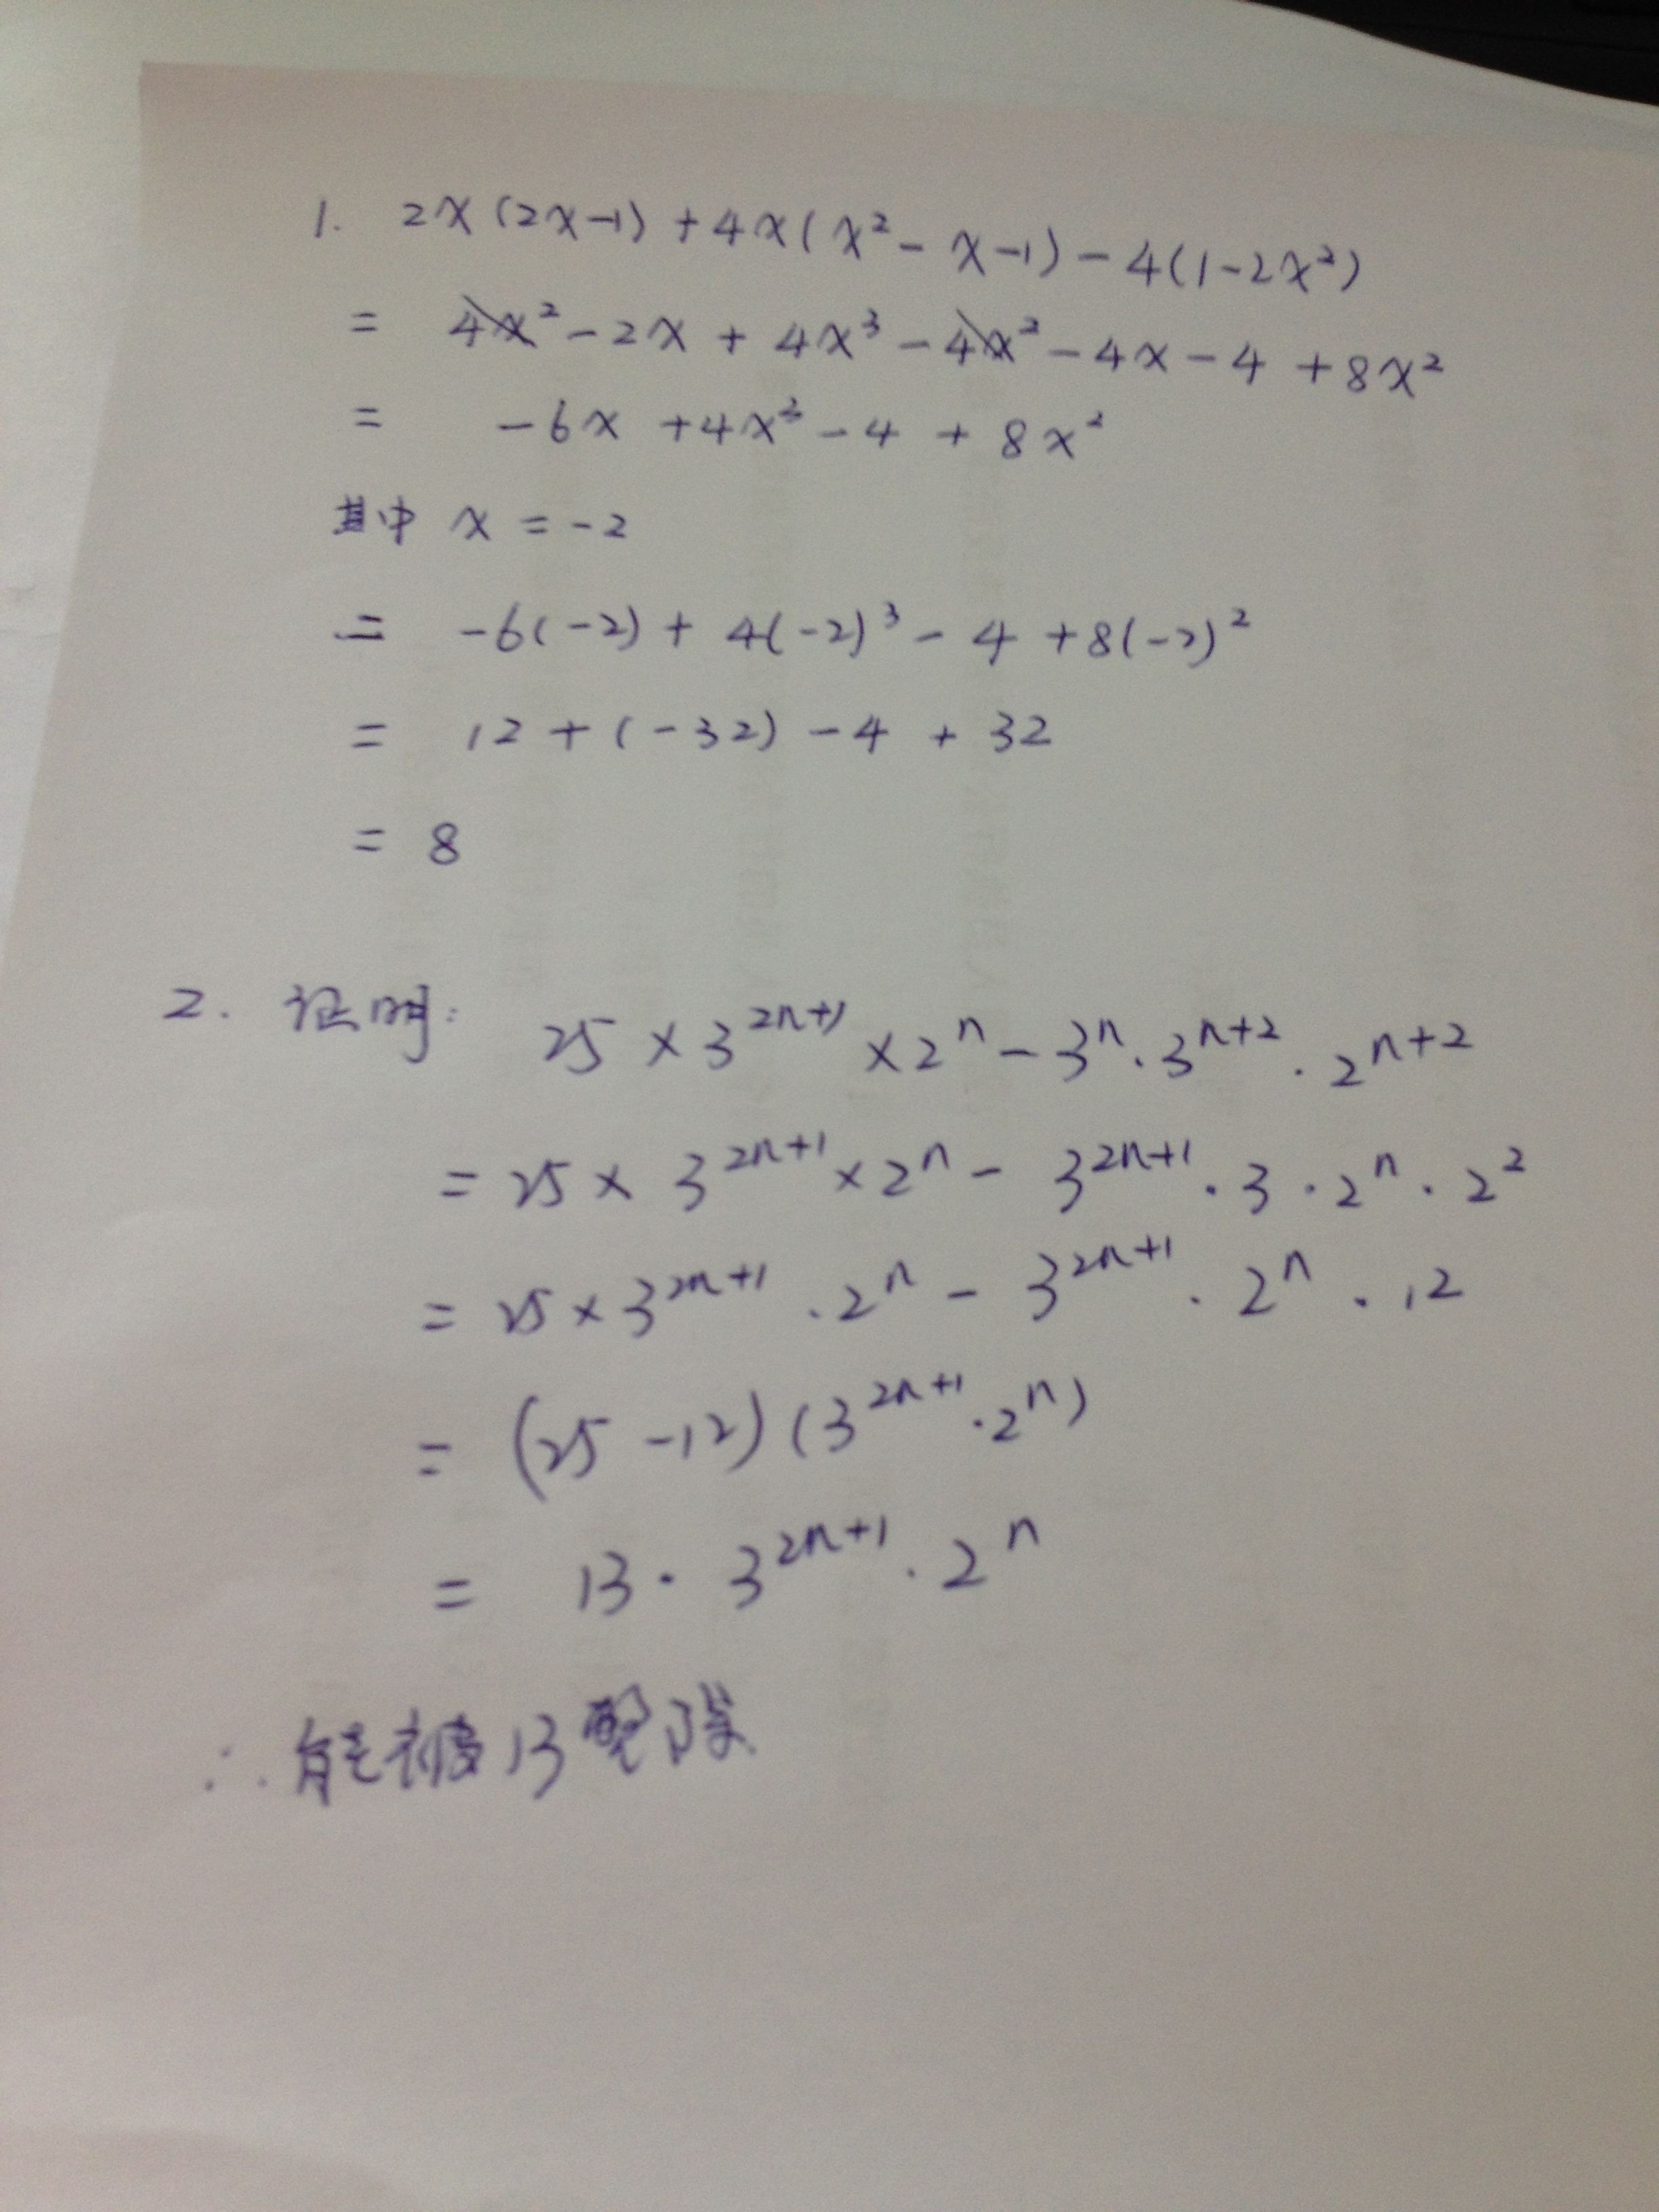 1. 2x(2x-1)+4x(x²-x-1)-4(1-2x²)
= 4x²-2x+4x³-4x²-4x-4+8x²
= -6x+4x³-4+8x²
其中 x=-2
= -6(-2)+4(-2)³-4+8(-2)²
= 12+(-32)-4+32
= 8
2. 证明: 25×3²ⁿ⁺¹×2ⁿ-3ⁿ·3ⁿ⁺²·2ⁿ⁺²
= 25×3²ⁿ⁺¹×2ⁿ-3²ⁿ⁺¹·3·2ⁿ·2²
= 25×3²ⁿ⁺¹·2ⁿ-3²ⁿ⁺¹·2ⁿ·12
= (25-12)(3²ⁿ⁺¹·2ⁿ)
= 13·3²ⁿ⁺¹·2ⁿ
∴能被13整除